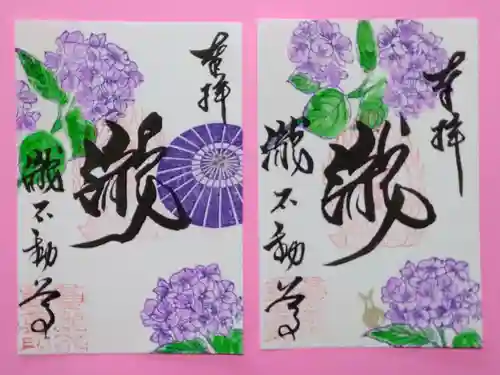 奉拝
瀧
瀧不動尊
奉拝
瀧
瀧不動尊